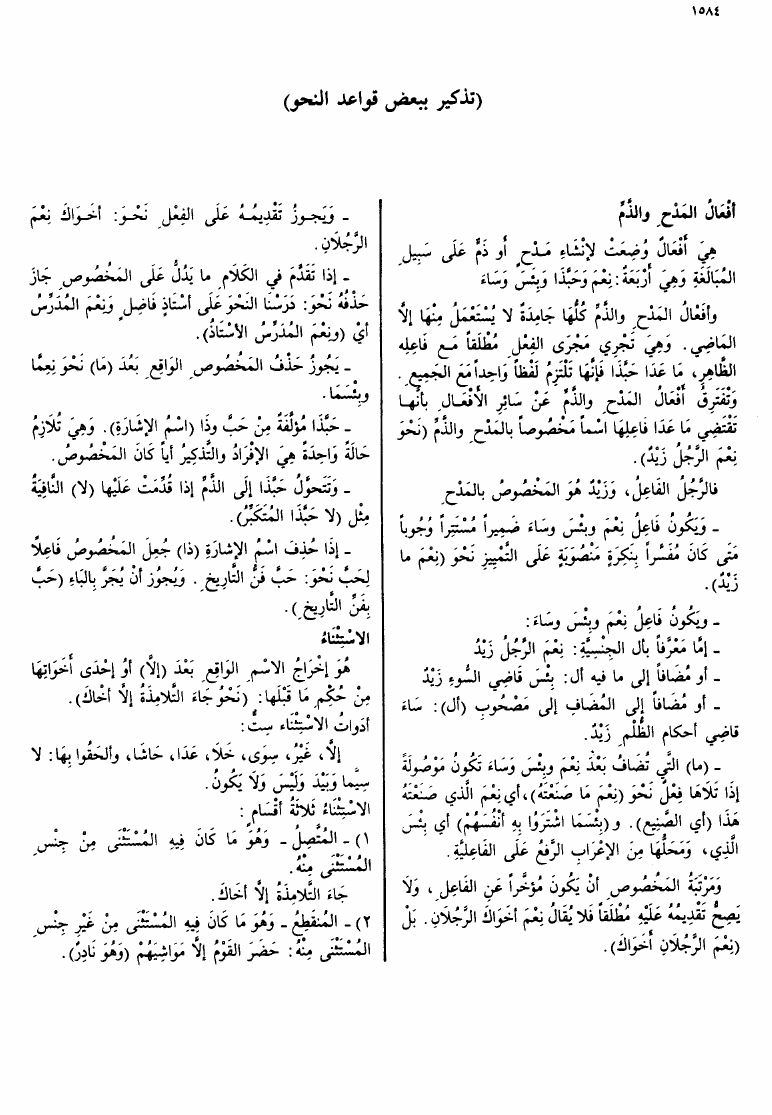 ١٥٨٤
(تذكير ببعض قواعد النحو)
أفْعَالُ المَدْحِ والذَّمِّ
هِيَ أَفْعَالٌ وُضِعَتْ لإنْشَاءِ مَدْحٍ أو ذَمٍّ عَلَى سَبِيلِ
المُبَالَغَةِ وَهِيَ أَرْبَعَةٌ: نِعْمَ وَحَبَّذَا وَبِئْسَ وَسَاءَ
وأفْعَالُ المَدْحِ والذَّمِّ كُلُّهَا جَامِدَةٌ لا يُسْتَعْمَلُ مِنْهَا إلَّا
المَاضِي. وَهِيَ تَجْرِي مَجْرَى الفِعْلِ مُطْلَقاً مَعَ فَاعِلِهِ
الظَّاهِرِ، مَا عَدَا حَبَّذَا فَإنَّهَا تَلْتَزِمُ لَفْظاً وَاحِداً مَعَ الجَمِيعِ.
وَتَفْتَرِقُ أَفْعَالُ المَدْحِ والذَّمِّ عَنْ سَائِرِ الأَفْعَالِ بأنَّهَا
تَقْتَضِي مَا عَدَا فَاعِلِهَا اسْماً مَخْصُوصاً بالمَدْحِ والذَّمِّ (نَحْوَ
نِعْمَ الرَّجُلُ زَيْدٌ).
فالرَّجُلُ الفَاعِلُ، وَزَيْدٌ هُوَ المَخْصُوصُ بالمَدْحِ
- وَيَكُونُ فَاعِلُ نِعْمَ وبِئْسَ وسَاءَ ضَمِيراً مُسْتَتِراً وُجُوباً
مَتَى كَانَ مُفَسَّراً بِنَكِرَةٍ مَنْصُوبَةٍ عَلَى التَّمْيِيزِ نَحْوَ (نِعْمَ ما
زَيْدٌ).
- ويَكُونُ فَاعِلُ نِعْمَ وبِئْسَ وسَاءَ:
- إمَّا مَعْرَّفاً بأل الجِنْسِيَّةِ: نِعْمَ الرَّجُلُ زَيْدٌ
- أو مُضَافاً إلى ما فيه أل: بِئْسَ قَاضِي السُّوءِ زَيْدٌ
- أو مُضَافاً إلى المُضَافِ إلى مَصْحُوبِ (أل): سَاءَ
قاضِي أحكام الظُّلْمِ زَيْدٌ.
- (ما) الَّتِي تُضَافُ بَعْدَ نِعْمَ وبِئْسَ وَسَاءَ تَكُونُ مَوْصُولَةً
إذَا تَلَاهَا فِعْلٌ نَحْوَ (نِعْمَ مَا صَنَعْتَهُ)، أي نِعْمَ الَّذي صَنَعْتَهُ
هَذَا (أي الصَّنِيع). و(بِئْسَمَا اشْتَرَوْا بِهِ أَنْفُسَهُمْ) أي بِئْسَ
الَّذِي، وَمَحَلُّهَا مِنَ الإعْرَابِ الرَّفْعُ عَلَى الفَاعِلِيَّةِ.
وَمَرْتَبَةُ المَخْصُوصِ أنْ يَكُونَ مُؤَخَّراً عَنِ الفَاعِلِ، وَلَا
يَصِحُّ تَقْدِيمُهُ عَلَيْهِ مُطْلَقاً فَلَا يُقَالُ نِعْمَ أخَوَاكَ الرَّجُلَانِ. بَلْ
(نِعْمَ الرَّجُلَانِ أَخَوَاكَ).
- وَيَجوزُ تَقْدِيمُهُ عَلَى الفِعْلِ نَحْوَ: أخَوَاكَ نِعْمَ
الرَّجُلَانِ.
- إذا تَقَدَّمَ في الكَلَامِ ما يَدُلُّ عَلَى المَخْصُوصِ جَازَ
حَذْفُهُ نَحْوَ: دَرَسْنا النَّحْوَ عَلَى أسْتَاذٍ فَاضِلٍ وَنِعْمَ المُدَرِّسُ
أيْ (ونِعْمَ المُدَرِّسُ الأسْتَاذُ).
- يَجُوزُ حَذْفُ المَخْصُوصِ الوَاقِعِ بَعْدَ (مَا) نَحْوَ نِعِمَّا
وبِئْسَمَا.
- حَبَّذَا مُؤَلَّفَةٌ مِنْ حَبَّ وذَا (اسْمُ الإشَارَةِ). وَهِيَ تُلَازِمُ
حَالَةً وَاحِدَةً هِيَ الإفْرَادُ والتَّذْكِيرُ أياً كَانَ المَخْصُوصُ.
- وَتَتَحوَّلُ حَبَّذَا إلَى الذَّمِّ إذا قُدِّمَتْ عَلَيْهَا (لا) النَّافِيَةُ
مِثْل (لا حَبَّذَا المُتَكَبِّرُ).
- إذَا حُذِفَ اسْمُ الإشَارَةِ (ذا) جُعِلَ المَخْصُوصُ فَاعِلاً
لِحَبَّ نَحْوَ: حَبَّ فَنُّ التَّارِيخِ. وَيَجُوز أنْ يُجَرَّ بِالبَاءِ (حَبَّ
بِفَنِّ التَّارِيخِ).
الاسْتِثْنَاءُ
هُوَ إخْرَاجُ الاسْمِ الوَاقِعِ بَعْدَ (إلَّا) أوْ إحْدَى أَخَوَاتِهَا
مِنْ حُكْمِ مَا قَبْلَهَا: (نَحْوُ جَاءَ التَّلَامِذَةُ إلَّا أخَاكَ).
أدَوَاتُ الاسْتِثْنَاءِ سِتٌّ:
إلَّا، غَيْرُ، سِوَى، خَلَا، عَدَا، حَاشَا، وألحَقُوا بِهَا: لا
سِيَّما وَبَيْدَ وَلَيْسَ وَلَا يَكُونُ.
الاسْتِثْنَاءُ ثَلَاثَةُ أَقْسَامٍ:
١) - المُتَّصِلُ - وَهُوَ مَا كَانَ فِيهِ المُسْتَثْنَى مِنْ جِنْسِ
المُسْتَثْنَى مِنْهُ.
جَاءَ التَّلامِذَةُ إلَّا أخَاكَ.
٢) - المُنقَطِعُ - وَهُوَ مَا كَانَ فِيهِ المُسْتَثْنَى مِنْ غَيْرِ جِنْسِ
المُسْتَثْنَى مِنْهُ: حَضَرَ القَوْمُ إلَّا مَوَاشِيَهُمْ (وَهُوَ نَادِرٌ).